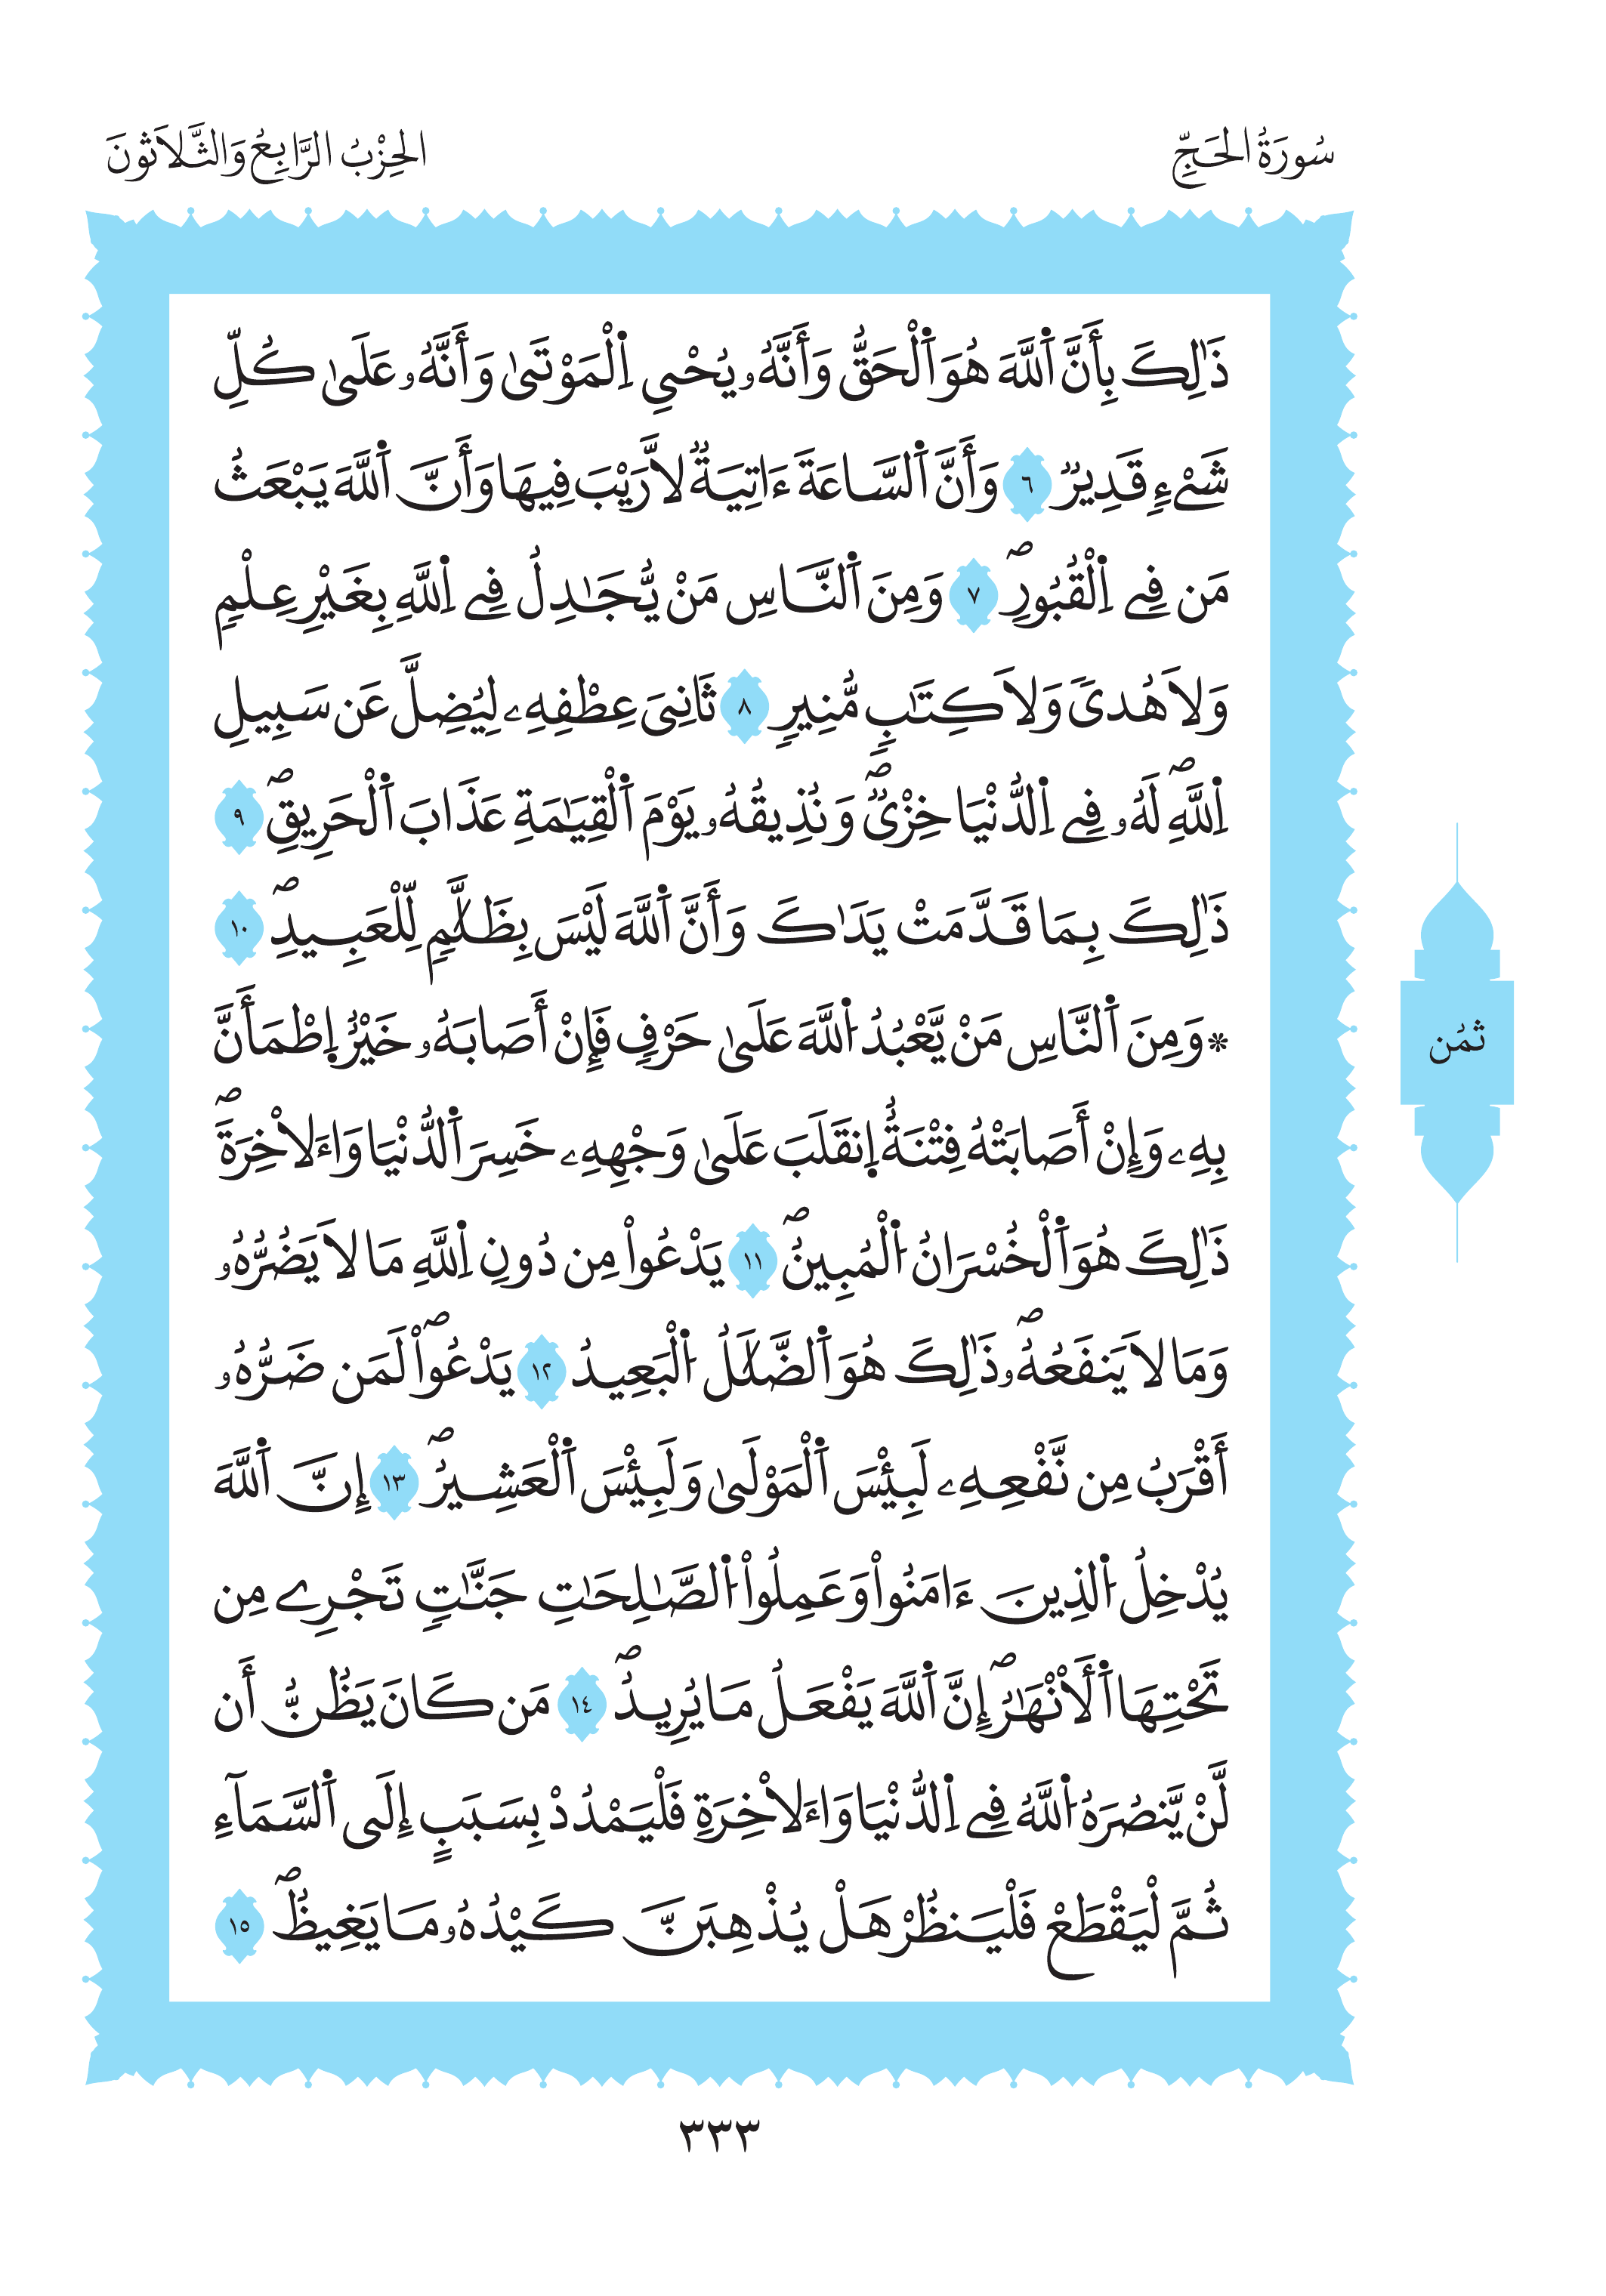 سُورَةُ الحَجِّ
الحِزْبُ الرَّابِعُ وَالثَّلَاثُونَ
ذَٰلِكَ بِأَنَّ اَ۬للَّهَ هُوَ اَ۬لْحَقُّ وَأَنَّهُۥ يُحْيِ اِ۬لْمَوْتَىٰ وَأَنَّهُۥ عَلَىٰ كُلِّ
شَےْءٖ قَدِيرٞ ٦ وَأَنَّ اَ۬لسَّاعَةَ ءَاتِيَةٞ لَّا رَيْبَ فِيهَا وَأَنَّ اَ۬للَّهَ يَبْعَثُ
مَن فِے اِ۬لْقُبُورِۖ ٧ وَمِنَ اَ۬لنَّاسِ مَنْ يُّجَٰدِلُ فِے اِ۬للَّهِ بِغَيْرِ عِلْمٖ
وَلَا هُدىٗ وَلَا كِتَٰبٖ مُّنِيرٖ ٨ ثَانِيَ عِطْفِهِۦ لِيُضِلَّ عَن سَبِيلِ
اِ۬للَّهِۖ لَهُۥ فِے اِ۬لدُّنْيَا خِزْيٞۖ وَنُذِيقُهُۥ يَوْمَ اَ۬لْقِيَٰمَةِ عَذَابَ اَ۬لْحَرِيقِۖ ٩
ذَٰلِكَ بِمَا قَدَّمَتْ يَدَٰكَ وَأَنَّ اَ۬للَّهَ لَيْسَ بِظَلَّٰمٖ لِّلْعَبِيدِۖ ١٠
۞وَمِنَ اَ۬لنَّاسِ مَنْ يَّعْبُدُ اُ۬للَّهَ عَلَىٰ حَرْفٖ فَإِنْ أَصَابَهُۥ خَيْرٌ اِ۪طْمَأَنَّ
بِهِۦ وَإِنْ أَصَابَتْهُ فِتْنَةٌ اِ۪نقَلَبَ عَلَىٰ وَجْهِهِۦ خَسِرَ اَ۬لدُّنْيَا وَاءَلَاخِرَةَۖ
ذَٰلِكَ هُوَ اَ۬لْخُسْرَانُ اُ۬لْمُبِينُۖ ١١ يَدْعُواْ مِن دُونِ اِ۬للَّهِ مَا لَا يَضُرُّهُۥ
وَمَا لَا يَنفَعُهُۥۖ ذَٰلِكَ هُوَ اَ۬لضَّلَٰلُ اُ۬لْبَعِيدُ ١٢ يَدْعُواْۖ لَمَن ضَرُّهُۥ
أَقْرَبُ مِن نَّفْعِهِۦ لَبِئْسَ اَ۬لْمَوْلَىٰ وَلَبِئْسَ اَ۬لْعَشِيرُۖ ١٣ إِنَّ اَ۬للَّهَ
يُدْخِلُ اُ۬لذِينَ ءَامَنُواْ وَعَمِلُواْ اُ۬لصَّٰلِحَٰتِ جَنَّٰتٖ تَجْرِے مِن
تَحْتِهَا اَ۬لْأَنْهَٰرُۖ إِنَّ اَ۬للَّهَ يَفْعَلُ مَا يُرِيدُۖ ١٤ مَن كَانَ يَظُنُّ أَن
لَّنْ يَّنصُرَهُ اُ۬للَّهُ فِے اِ۬لدُّنْيَا وَاءَلَاخِرَةِ فَلْيَمْدُدْ بِسَبَبٍ إِلَى اَ۬لسَّمَآءِ
ثُمَّ لْيَقْطَعْ فَلْيَنظُرْ هَلْ يُذْهِبَنَّ كَيْدُهُۥ مَا يَغِيظُۖ ١٥
ثمُن
٣٣٣